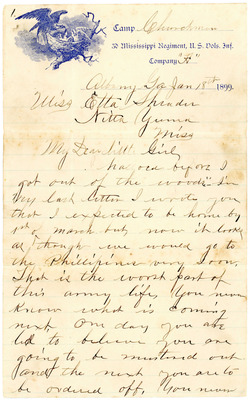 Camp Churchman
3d Mississippi Regiment, U. S. Vols. Inf.
Company "F"
Albany Ga Jan 18th 1899
Miss Etta Shrader
Nitta Yuma
Miss
My Dear little Girl
before I
got out of the woods. In
very last letter I wrote you
that I expected to be home by
1st of march but now it looks
as though we would go to
the Phillipines very soon.
That is the worst part of
this army life, You never
know what is coming
next. One day you are
led to believe you are
going to be mustered out
and the next you are to
be ordered off. You never